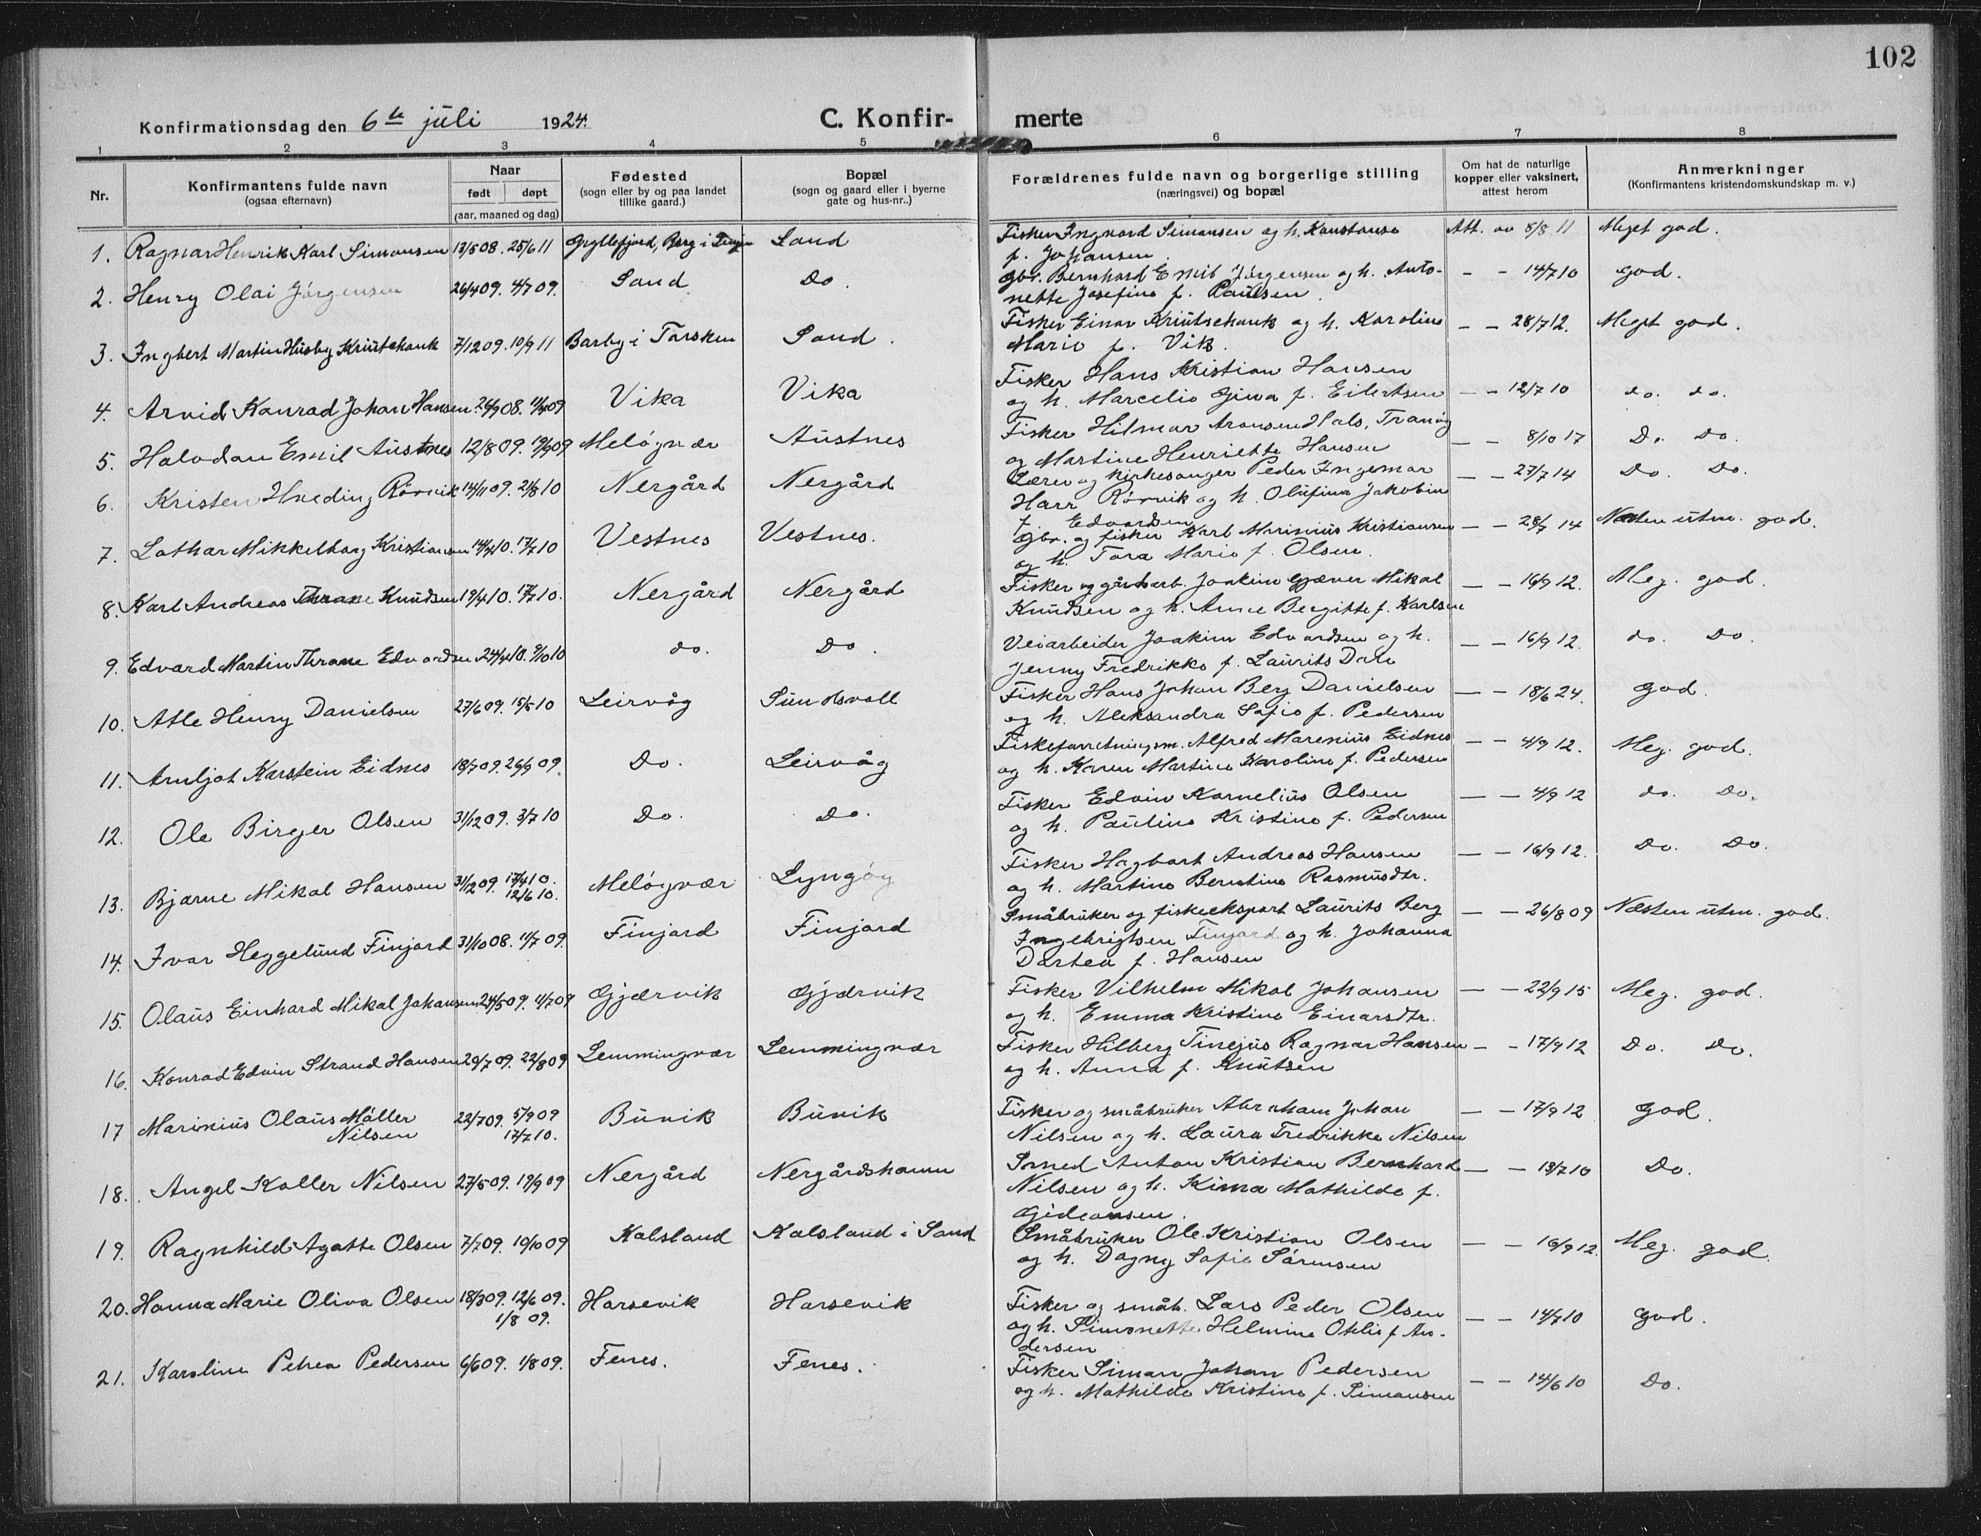 102
Konfirmationsdag den 6te juli 1924. C. Konfir- merte
1 2 3 4 5 6 7 8
Nr. Konfirmantens fulde navn (ogsaa efternavn) Naar født døpt (aar, maaned og dag) Fødested (sogn eller by og paa landet tillike gaard.) Bopæl (sogn og gaard eller i byerne gate og hus-nr..) Forældrenes fulde navn og borgerlige stilling (næringsvei) og bopæl Om hat de naturlige kopper eller vaksinert, attest herom Anmerkninger (Konfirmantens kristendomskundskap m. v.)
1. Ragnar Henrik Karl Simonsen 13/5 08. 25/6 11 Gryllefjord, Berg i Senjen Sand Fisker Ingvard Simonsen og h. Konstanse Att. av 5/8 11 Meget god.
f. Johansen.
2. Henry Olai Jørgensen 26/4 09. 4/7 09. Sand Do. Gbr. Bernhard Emil Jørgensen og h. Anto- - - 14/7 10 god.
nette Josefine f. Paulsen.
3. Ingbert Martin Husby Knutshauk 7/12 09. 10/9 11 Barby i Torsken Sand. Fisker Einar Knutsehauk og h. Karoline - - 28/7 12. Meget god.
Marie f. Vik.
4. Arvid Konrad Johan Hansen. 26/9 08. 11/4 09 Vika Vika Fisker Hans Kristian Hansen
og h. Marcelie Gina f. Eilertsen - - 12/7 10 do. do.
5. Halvdan Emil Austnes 12/8 09. 19/9 09 Meløgvær Austnes Fisker Hilmar Aronsen Hals, Tranøy - - 8/10 17 Do. Do.
og Martine Henriette Hansen
6. Kristen Hveding Rørvik 14/11 09. 21/8 10 Nergård Nergård Lærer og kirkesanger Peder Ingemar - - 27/7 14 Do. Do.
Harr Rørvik og h. Olufina Jakobine
f. Edvardsen
7. Lothar Mikkelborg Kristiansen 14/4 10. 17/7 10 Vestnes Vestnes. Gbr. og fisker Karl Marinius Kristiansen - - 28/7 14 Næsten utm. god.
og h. Tora Marie f. Olsen.
8. Karl Andreas Thrane Knudsen 19/4 10. 17/7 10. Nergård Nergård Fisker og gårdarb. Joakim Gjæver Mikal - - 16/9 12. Meg. god.
Knudsen og h. Anne Bergitte f. Karlsen
9. Edvard Martin Thrane Edvardsen 24/4 10. 9/10 10 do. Do. Veiarbeider Joakim Edvardsen og h. - - 16/9 12. do. Do.
Jenny Fredrikke f. Laurits Datr
10. Atle Henry Danielsen 27/6 09. 15/5 10 Leirvåg Sundsvoll Fisker Hans Johan Berg Danielsen - - 18/6 24. god.
og h. Aleksandra Sofie f. Pedersen
11. Arnljot Karstein Eidnes 18/7 09. 26/9 09. Do. Leirvåg Fiskeforretningsm. Alfred Marenius Eidnes - - 4/9 12. Meg. god.
og h. Karen Martine Karoline f. Pedersen
12. Ole Birger Olsen 31/12 09. 3/7 10 Do. Do. Fisker Edvin Kornelius Olsen - - 4/9 12 do. Do.
og h. Pauline Kristine f. Pedersen
13. Bjarne Mikal Hansen 31/12 09. 17/4 10. Meløyvær Lyngøy Fisker Hagbart Andreas Hansen - - 16/9 12. Do. Do.
12/6 10. og h. Martine Berntine Rasmusdtr.
14. Ivar Heggelund Finjord 31/10 08. 11/7 09. Finjord Finjord Småbruker og fiskeeksport Laurits Berg - - 26/8 09 Næsten utm. god.
Ingebrigtsen Finjord og h. Johanna
Dortea f. Hansen
15. Olaus Einhard Mikal Johansen 24/5 09. 4/7 09 Gjærvik Gjærvik Fisker Vilhelm Mikal Johansen - - 22/9 15 Meg. god.
og h. Emma Kristine Einarsdtr.
16. Konrad Edvin Strand Hansen 29/7 09. 22/8 09 Lemmingvær Lemmingvær Fisker Hilberg Tinejus Ragnar Hansen - - 17/9 12 Do. Do.
og h. Anna f. Knutsen
17 Marinius Olaus Møller 22/7 09. 5/9 09 Buvik Buvik Fisker og småbruker Abraham Johan - - 17/9 12 god.
Nilsen 17/7 10. Nilsen og h. Laura Fredrikke Nilsen
18. Angel Koller Nilsen 27/5 09. 19/9 09 Nergård Nergårdshamn Smed Anton Kristian Bernhard - - 13/7 10 Do.
Nilsen og h. Kima Mathilde f.
Gideonsen.
19. Ragnhild Agatte Olsen 7/7 09. 10/10 09 Kalsland Kalsland i Sand Småbruker Ole Kristian Olsen - - 16/9 12. Meg. god.
og h. Dagny Sofie Sørensen
20. Hanna Marie Oliva Olsen 18/3 09. 12/6 09. Harsevik Harsevik Fisker og småb. Lars Peder Olsen - - 14/7 10 god.
1/8 09. og h. Simonette Helmine Otilie f. An-
dersen
21. Karoline Petrea Pedersen 6/6 09. 1/8 09. Fenes. Fenes. Fisker Simon Johan Pedersen - - 14/6 10 Do.
og h. Mathilde Kristine f. Simonsen